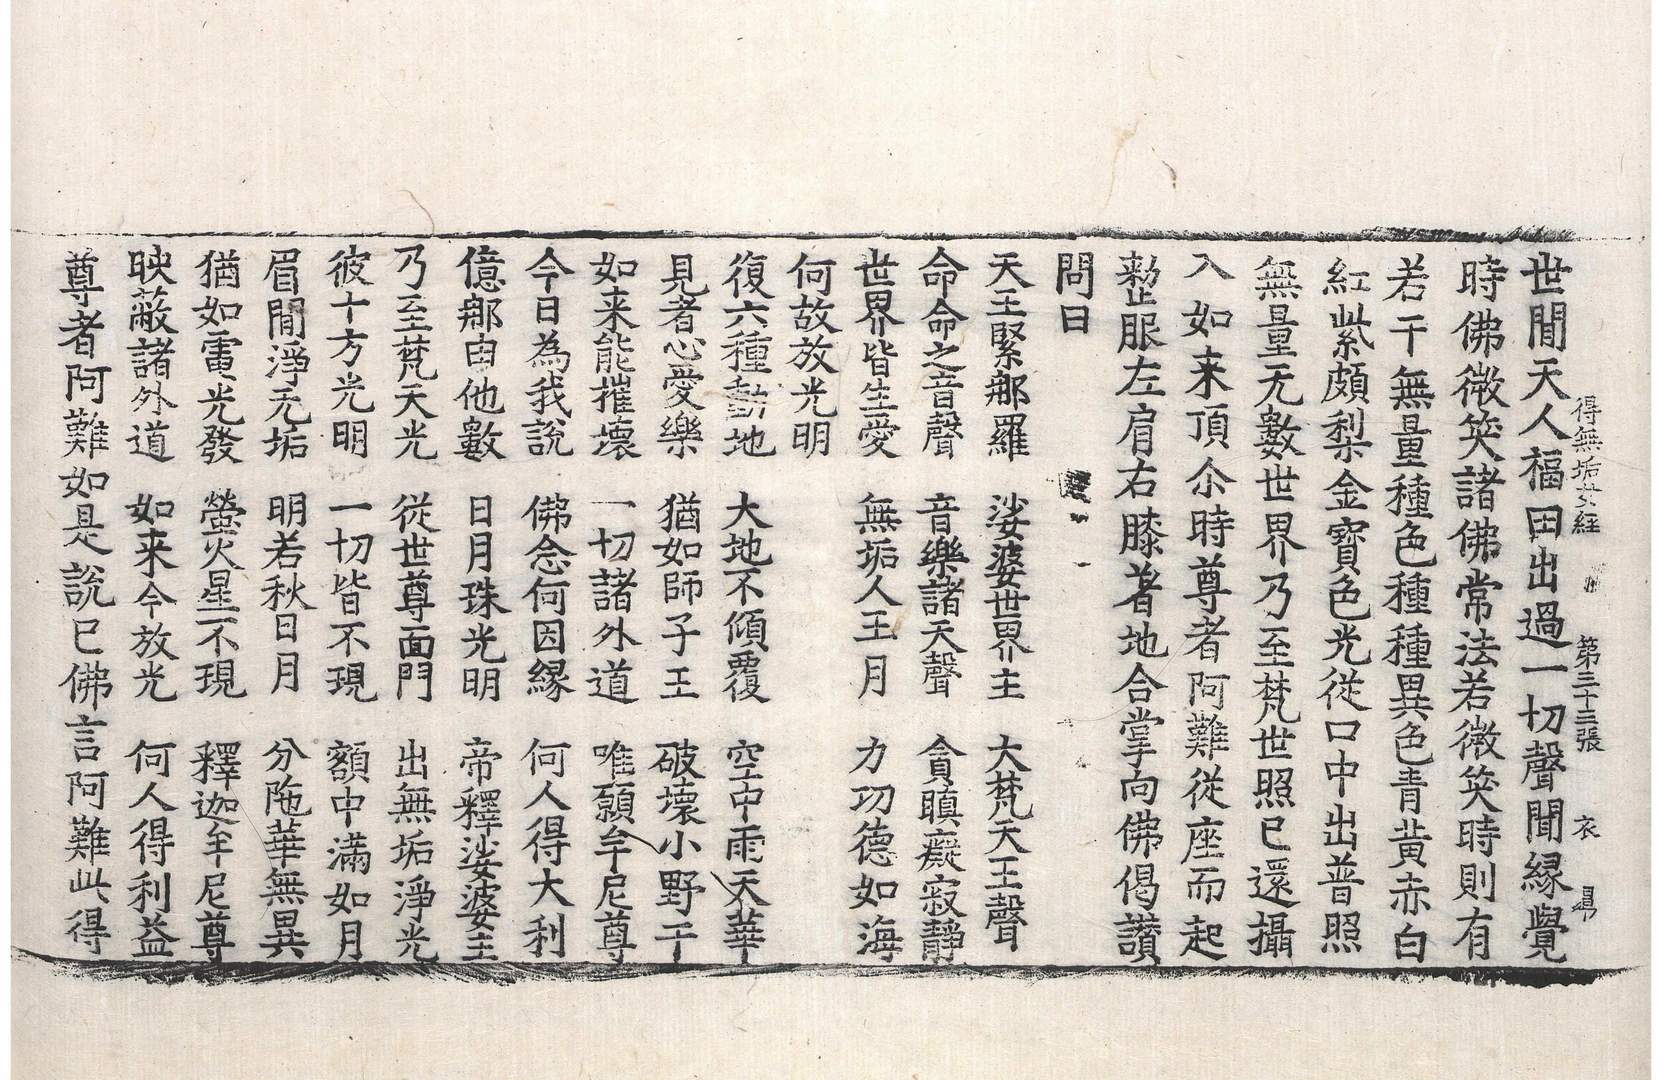 得無垢女經 第三十三張 衣
世間天人福田出過一切聲聞緣覺
時佛微笑諸佛常法若微笑時則有
若干無量種色種種異色青黃赤白
紅紫頗梨金寶色光從口中出普照
無量无數世界乃至梵世照已還攝
入如来頂尒時尊者阿難從座而起
整服左肩右膝著地合掌向佛偈讚
問曰
天王緊那羅 娑婆世界主 大梵天王聲
命命之音聲 音樂諸天聲 貪瞋癡寂靜
世界皆生愛 無垢人王月 力功德如海
何故放光明
復六種動地 大地不傾覆 空中雨天華
見者心愛樂 猶如師子王 破壞小野干
如来能摧壞 一切諸外道 唯願牟尼尊
今日為我說 佛念何因緣 何人得大利
億那由他數 日月珠光明 帝釋娑婆主
乃至梵天光 從世尊面門 出無垢淨光
彼十方光明 一切皆不現 額中滿如月
眉間淨无垢 明若秋日月 分陁華無異
猶如電光發 螢火星不現 釋迦牟尼尊
映蔽諸外道 如来今放光 何人得利益
尊者阿難如是說已佛言阿難此得